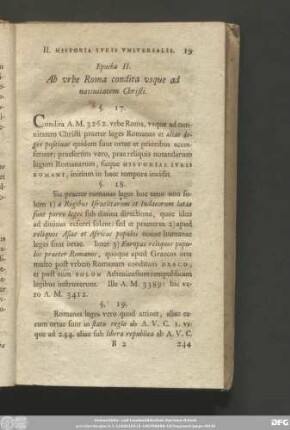 II. HISTORIA IVRIS VNIVERSALIS. 19
Epocha II.
Ab vrbe Roma condita vsque ad
natiuitatem Christi.
§. 17.
Condita A. M. 3262. vrbe Roma, vsque ad na-
tiuitatem Christi praeter leges Romanas et aliae le-
ges positiuae quidem sunt ortae et prioribus acces-
serunt; praesertim vero, prae reliquis notandarum
legum Romanarum, sicque HISTORIAE IVRIS
ROMANI, initium in haec tempora incidit.
§. 18.
Sic praeter romanas leges hoc tempore non so-
lum 1) a Regibus Israelitarum et Iudaeorum latae
sunt
leges sub diuina directione, quae ideo
ad diuinas referri solent: sed et praeterea 2) apud
reliquos Asiae et Africae populos nouae humanae
leges sunt ortae. Inter 3) Europae reliquos popu-
los praeter Romanos, quoque apud Graecos non
multo post vrbem Romanam conditam DRACO,
et post eum SOLON Atheniensium rempublicam
legibus instruxerunt. Ille A. M. 3389. hic ve-
ro A. M. 3412.
§. 19.
Romanas leges vero quod attinet, aliae ea-
rum ortae sunt in statu regio ab A. V. C. 1. vs-
que ad 244. aliae sub libera republica ab A. V. C.
B 2 244